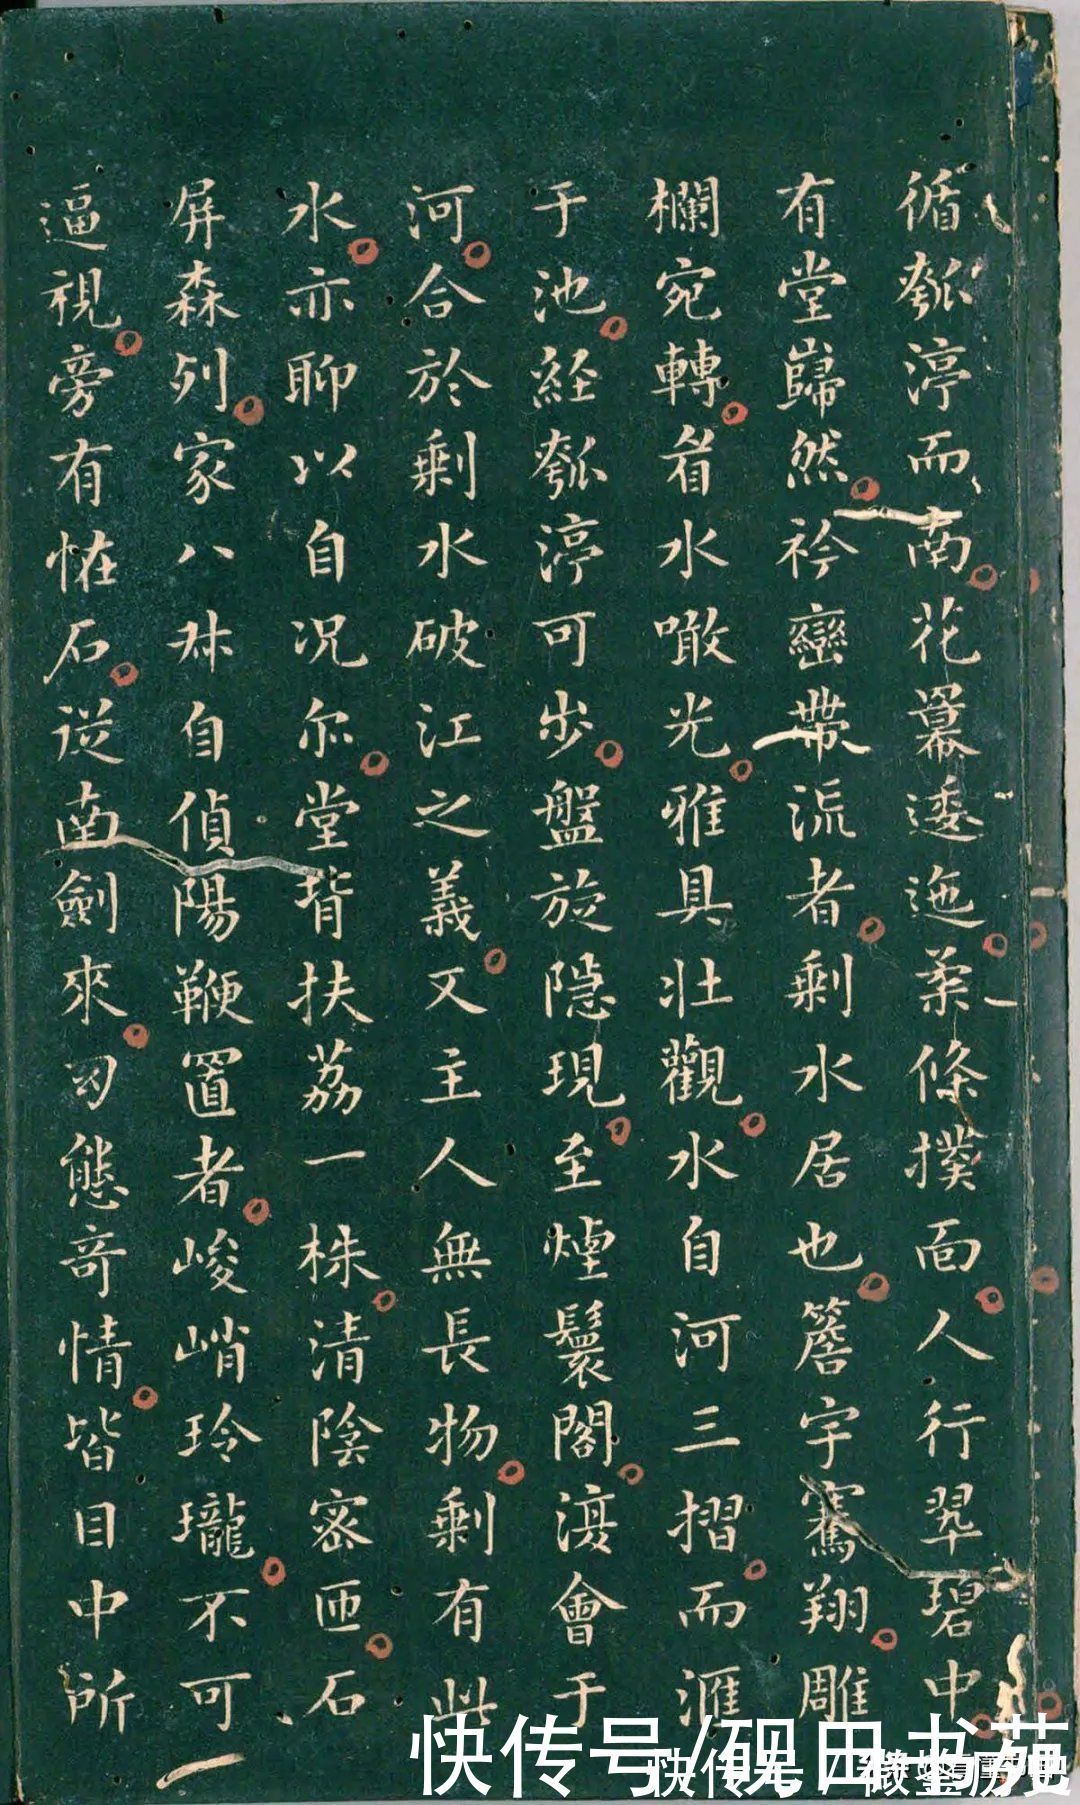 循瓠渟而南花羃逶迤柔條撲面人行翠碧中
有堂巋然衿巒帶流者剩水居也簷宇騫翔雕
欄宛轉看水噉光雅具壯觀水自河三摺而滙
于池經瓠渟可步盤旋隱現至煙鬟閣復會于
河合於剩水破江之義又主人無長物剩有此
水亦聊以自况尔堂背扶荔一株清陰密匝石
屏森列家八叔自偵陽鞭置者峻峭玲瓏不可
逼視旁有怪石從南劍來幻態奇情皆目中所
快传号/砚田书苑
快传号